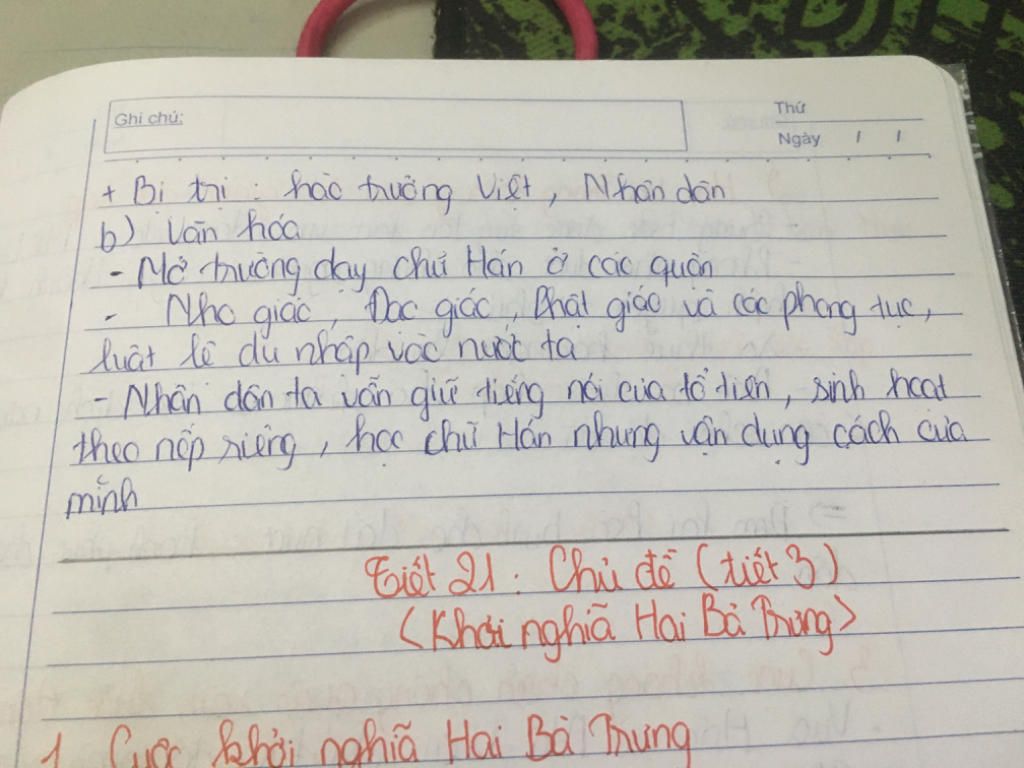 Ghi chú:
Thứ
Ngày / /
+ Bị trị : hào trưởng Việt, Nhân dân
b) Văn hóa
- Mở trường dạy chữ Hán ở các quận
- Nho giáo, Đạo giáo, Phật giáo và các phong tục,
luật lệ du nhập vào nước ta
- Nhân dân ta vẫn giữ tiếng nói của tổ tiên, sinh hoạt
theo nếp riêng, học chữ Hán nhưng vận dụng cách của
mình
Tiết 21 : Chủ đề (tiết 3)
(Khởi nghĩa Hai Bà Trưng)
1. Cuộc khởi nghĩa Hai Bà Trưng